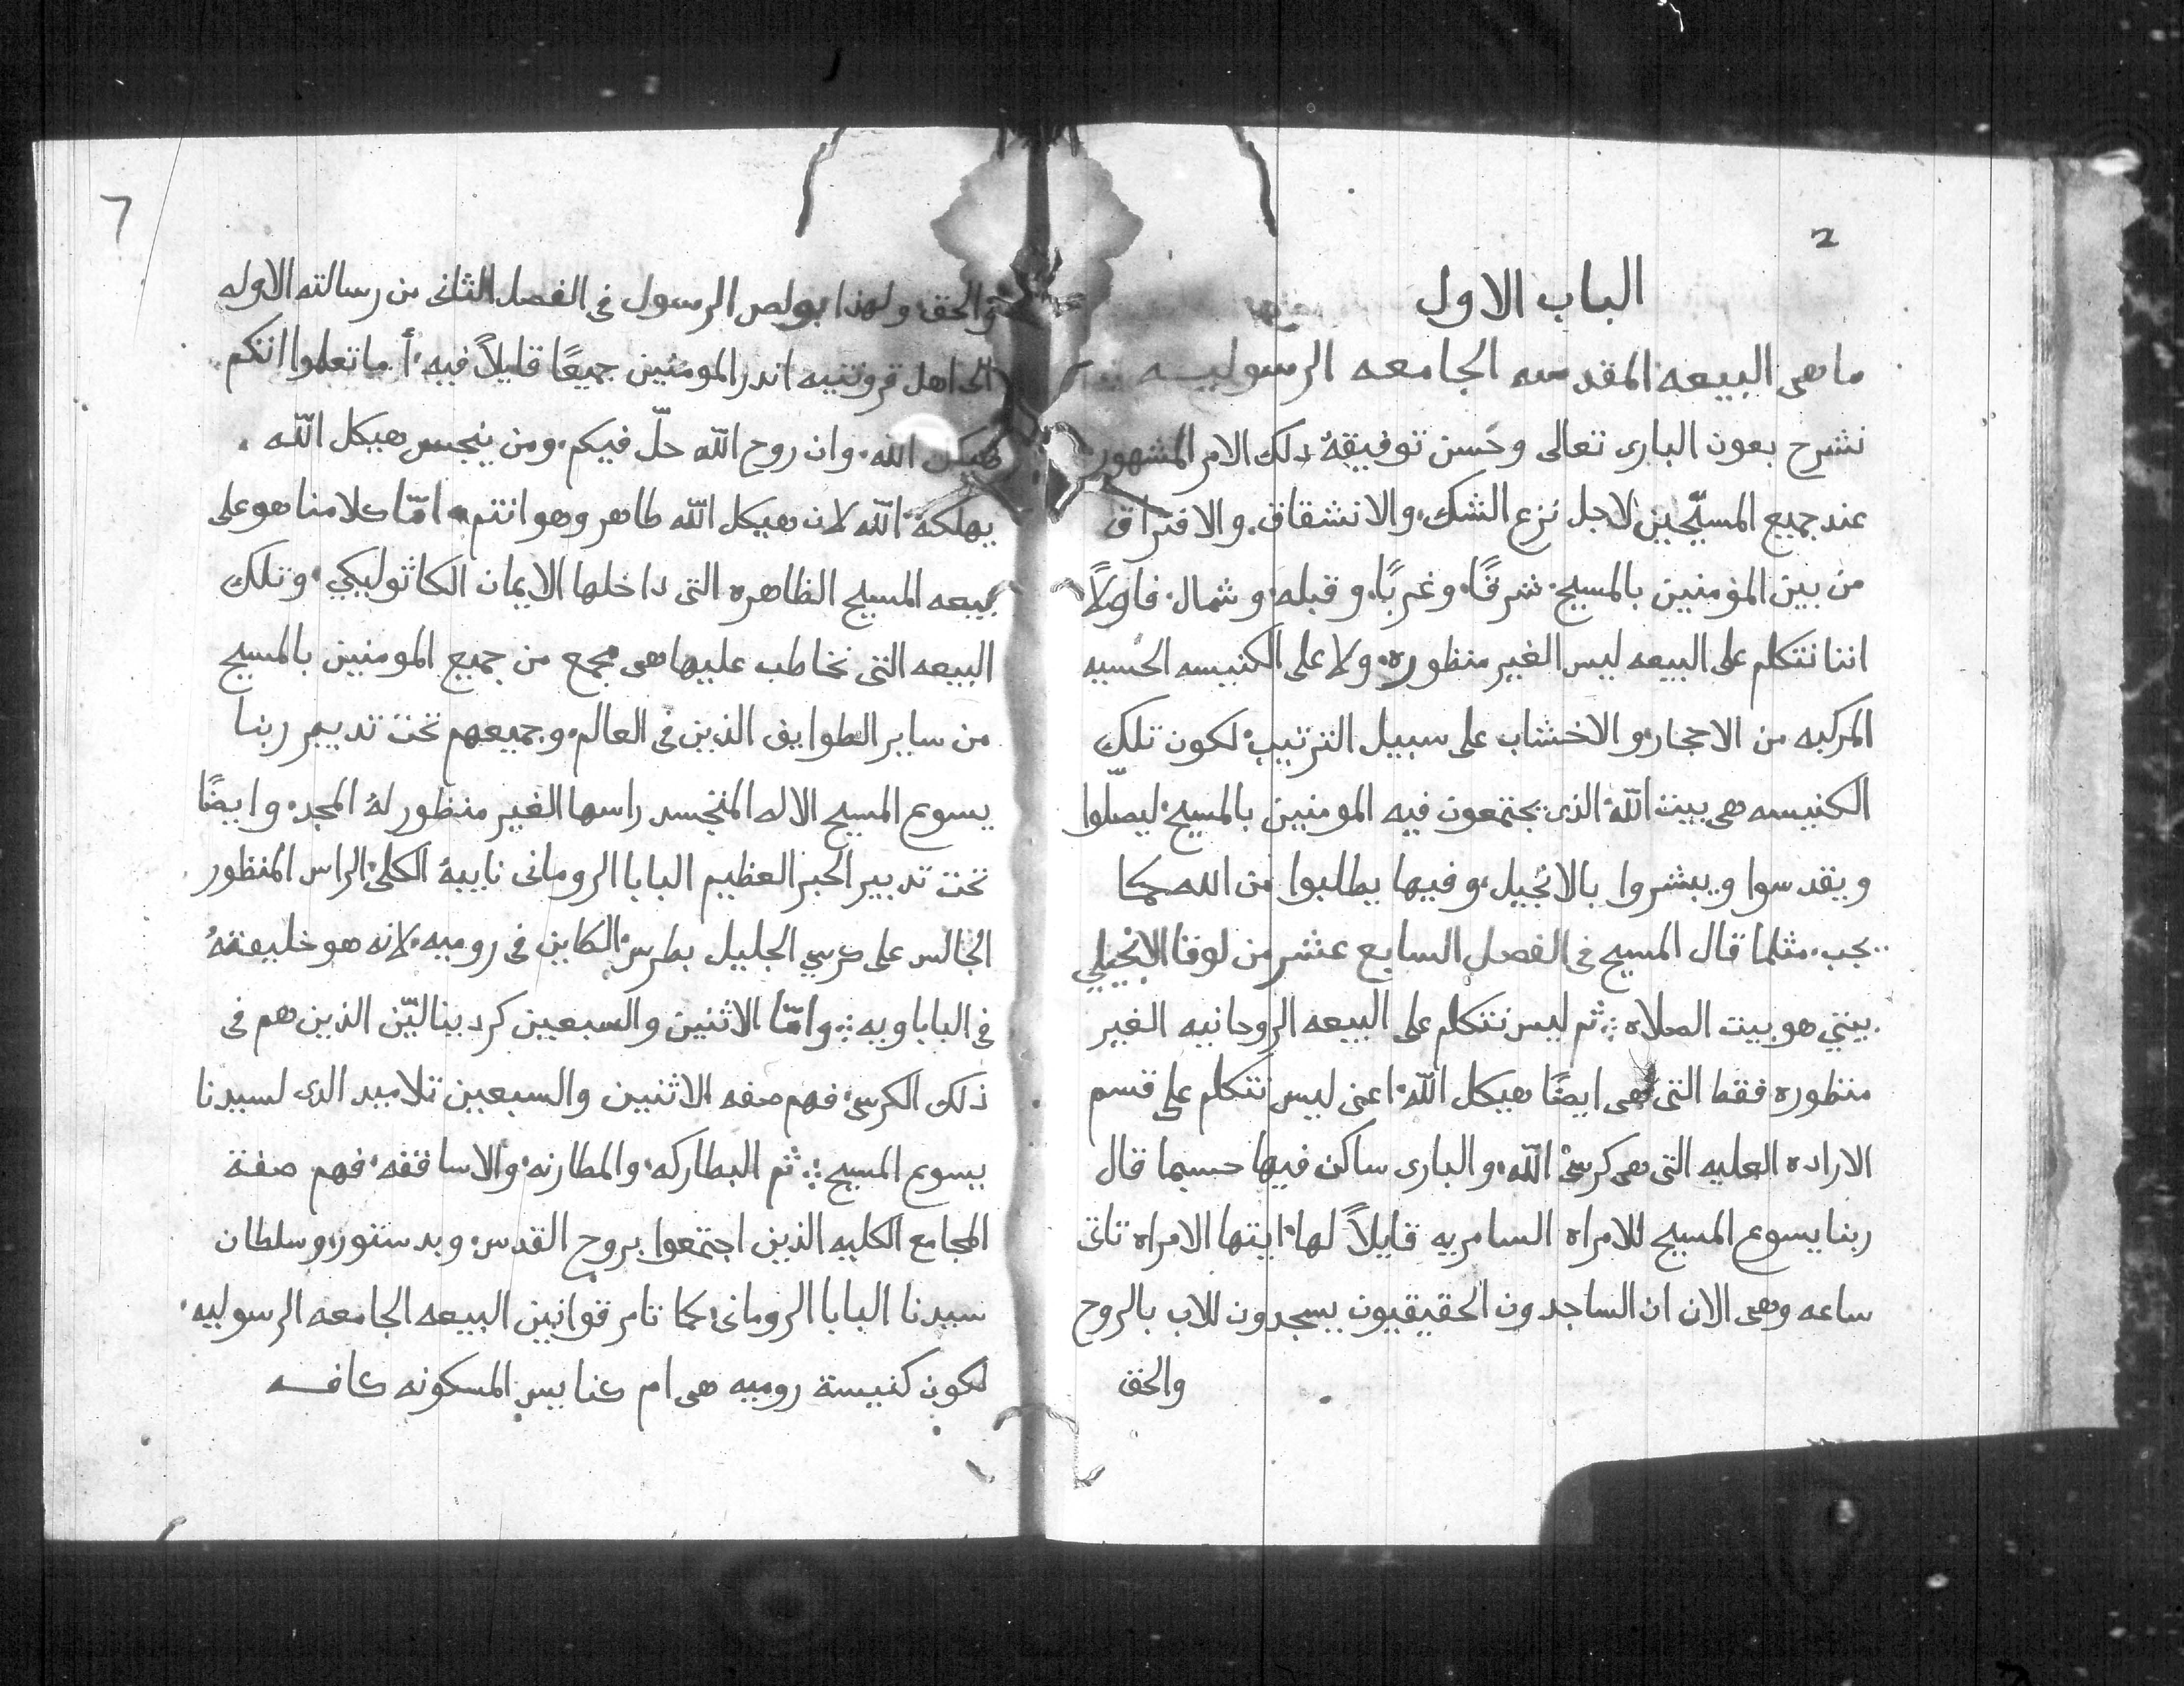 2
الباب الاول
ما هى البيعه المقدسه الجامعه الرسوليه
نشرح بعون البارى تعالى وحُسن توفيقهُ دلك الامر المشهور
عند جميع المسيّحيين لاجل نزع الشك، والانشقاق، والافتراق
من بين المؤمنين بالمسيح، شرقًا، وغربًا، وقبله، وشمال، فاولاً
اننا نتكلم على البيعه ليس الغير منظوره، ولا على الكنيسه الحسيه
المركبه من الاحجار، والاخشاب على سبيل الترتيب، لكون تلك
الكنيسه هى بيت اللّه الذى يجتمعون فيه المومنين بالمسيح، ليصلّوا
ويقدسوا ويبشروا بالانجيل، وفيها يطلبوا من الله كما
يجب، مثلما قال المسيح فى الفصل السابع عشر من لوقا الانجيلي
بيتي هو بيت الصلاه ⁘ ثم ليس نتكلم على البيعه الروحانيه الغير
منظوره فقط التى هى ايضًا هيكل اللّه، اعنى ليس نتكلم على قسم
الاراده العليه التى هى كرسى اللّه، والبارى ساكن فيها حسبما قال
ربنا يسوع المسيح للامراه السامريه قايلاً لها، ايتها الامراه تاتى
ساعه وهى الان ان الساجدون الحقيقيون يسجدون للاب بالروح
والحق
7
والحق، ولهذا بولص الرسول فى الفصل الثانى من رسالته الاوله
الى اهل قرونتيه اندر المومنين جميعًا قايلاً فيه، أ ما تعلموا انكم
هيكل اللّه، وان روح اللّه حلّ فيكم، ومن ينجس هيكل اللّه،
يهلكهُ اللّه لان هيكل اللّه طاهر وهو انتم، امّا كلامنا هو على
بيعه المسيح الظاهره التى داخلها الايمان الكاثوليكي، وتلك
البيعه التى نخاطب عليها هى مجمع من جميع المومنين بالمسيح
من ساير الطوايف الذين فى العالم، وجميعهم تحت تدبير ربنا
يسوع المسيح الاله المتجسد راسها الغير منظور لهُ المجد، وايضًا
تحت تدبير الحبر العظيم البابا الرومانى نايبهُ الكلى، الراس المنظور
الجالس على كرسي الجليل بطرس، الكاين فى روميه، لانه هو خليفتهُ
فى الباباويه ⁘ وامّا الاثنين والسبعين كردينالييّن الذين هم فى
ذلك الكرسى، فهم صفه الاثنين والسبعين تلاميد الدى لسيدنا
يسوع المسيح ⁘ ثم البطاركه، والمطارنه، والاساقفه، فهم صفة
المجامع الكليه الذين اجتمعوا بروح القدس، وبدستور، وسلطان
سيدنا البابا الرومانى، كما تامر قوانين البيعه الجامعه الرسوليه،
لكون كنيسة روميه هى ام كنايس المسكونه كافه